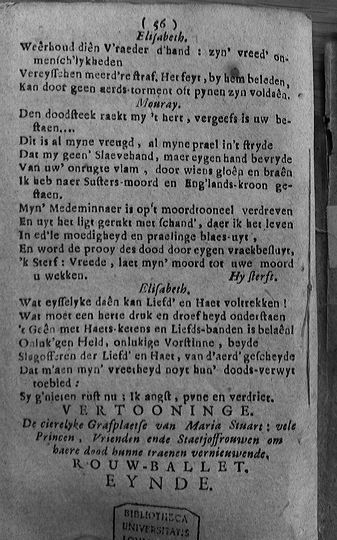 ( 56 )
Elisabeth.
Weêrhoud diên V'raeder d'hand : zyn' vreed' on-
mensch'lykheden
Vereysschen meerd're straf. Het feyt, by hem beleden,
Kan door geen aerds torment oft pynen zyn voldaên.
Mouray.
Den doodsteek raekt my 't hert, vergeefs is uw be-
staen....
Dit is al myne vreugd, al myne prael in't stryde
Dat my geen' Slaevehand, maer eygen hand bevryde
Van uw' onrugte vlam, door wiens gloên en braên
Ik heb naer Susters-moord en Eng'lands-kroon ge-
staen.
Myn' Medeminnaer is op't moordtooneel verdreven
En uyt het ligt gerukt met schand', daer ik het leven
In ed'le moedigheyd en praelinge blaes-uyt,
En word de prooy des dood door eygen vraekbesluyt,
'k Sterf : Vreede, laet myn' moord tot uwe moord
u wekken. Hy sterft.
Elisabeth.
Wat eysselyke daên kan Liefd' en Haet voltrekken !
Wat moet een herte druk en droefheyd onderstaen
't Geên met Haets-ketens en Liefds-banden is belaên!
Onluk'gen Held, onlukige Vorstinne, beyde
Slagofferen der Liefd' en Haet, van d'aerd' gescheyde
Dat m'aen myn' vreetheyd noyt hun' doods-verwyt
toebied :
Sy g'nieten rust nu ; Ik angst, pyne en verdriet.
VERTOONINGE.
De cierelyke Grafplaetse van Maria Stuart : vele
Princen, Vrienden ende Staetjoffrouwen om
haere dood hunne traenen vernieuwende,
ROUW-BALLET.
EYNDE.
BIBLIOTHECA
UNIVERSITATIS